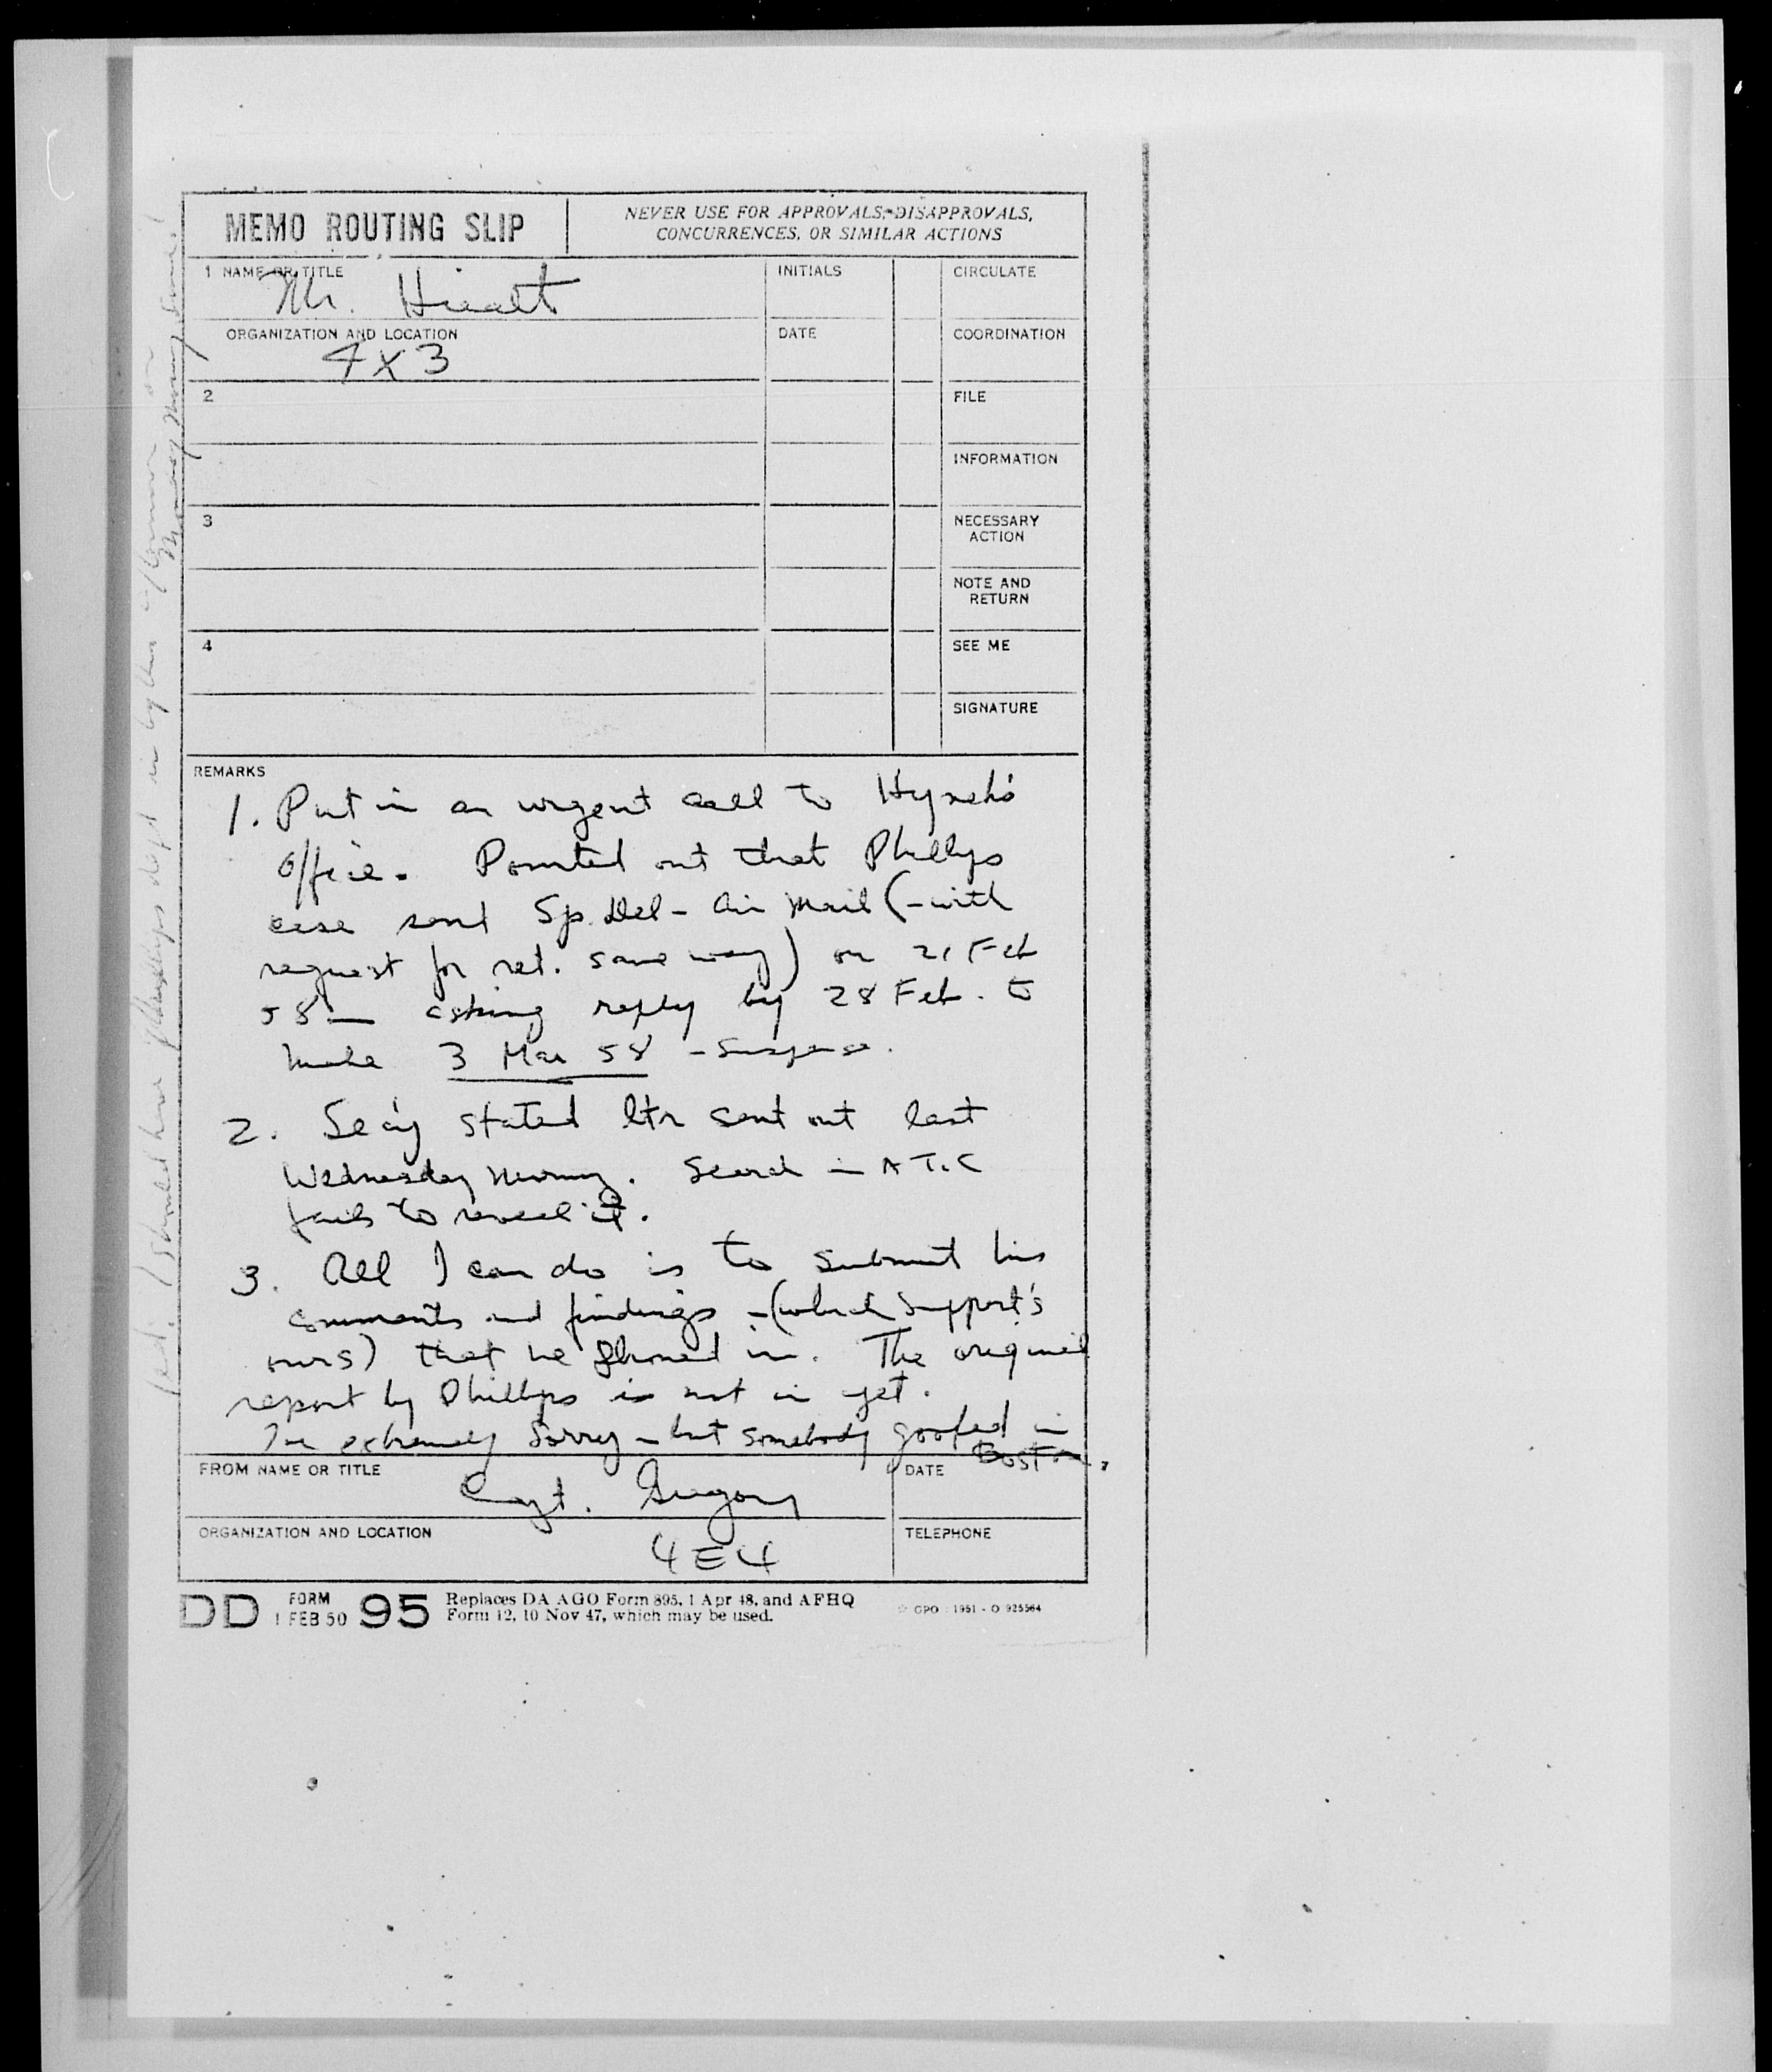 MEMO ROUTING SLIP
NEVER USE FOR APPROVALS, DISAPPROVALS,
CONCURRENCES, OR SIMILAR ACTIONS
1 NAME OR TITLE
Mr.
INITIALS
CIRCULATE
ORGANIZATION AND LOCATION
4X3
DATE
COORDINATION
2
FILE
INFORMATION
3
NECESSARY
ACTION
NOTE AND
RETURN
4
SEE ME
SIGNATURE
REMARKS
1. Put in an urgent call to Hynek's
office. Pointed out that Phillips
case sent Sp. Del - Air Mail (- with
request for ret. same way) on 21 Feb
58 — asking reply by 28 Feb. to
make 3 Mar 58 - suspense.
2. stated ltr sent out last
Wednesday morning. Search in ATIC
fails to reveal it.
3. All I can do is to submit his
comments and findings - (which support's
ours) that he phoned in. The original
report by Phillips is not in yet.
I'm extremely sorry - but somebody goofed in
Boston.
FROM NAME OR TITLE
Capt. Gregory
DATE
ORGANIZATION AND LOCATION
4E4
TELEPHONE
DD FORM 1 FEB 50 95
Replaces DA AGO Form 895, 1 Apr 48, and AFHQ
Form 12, 10 Nov 47, which may be used.
GPO : 1951 - O 925564
I should have Phillips dept in by this afternoon or
Monday morning